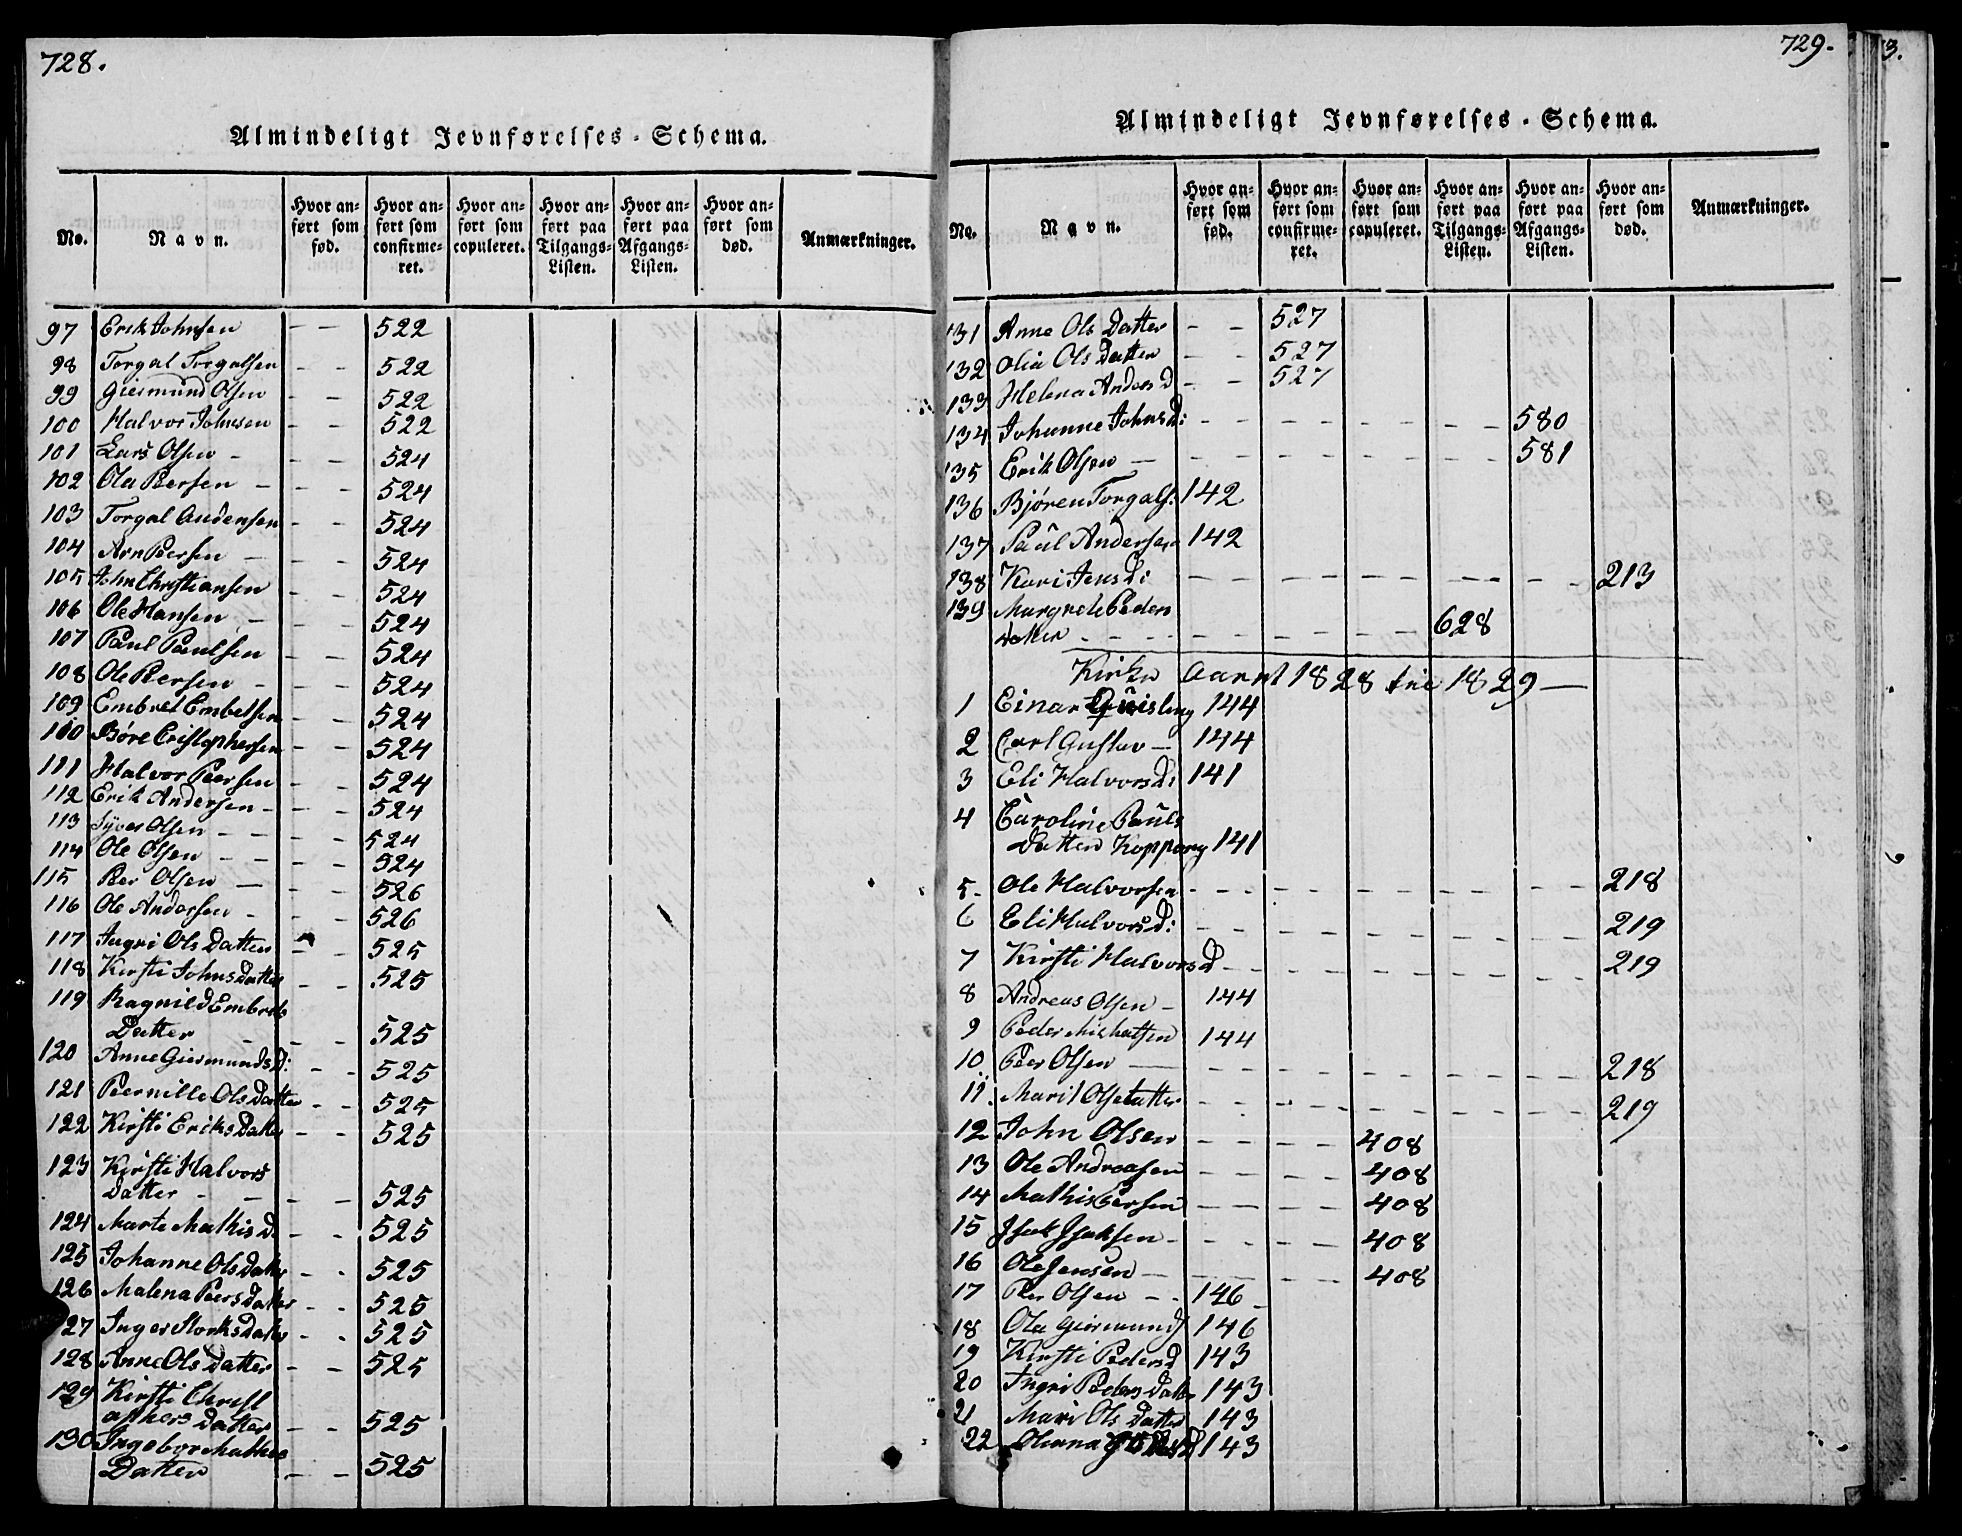 728.
Almindeligt Jevnførelses-Schema.
No. Navn. Hvor anført som fød. Hvor anført som confirmeret. Hvor anført som copuleret. Hvor anført paa Tilgangs-Listen. Hvor anført paa Afgangs-Listen. Hvor anført som død. Anmærkninger.
97 Erik Johnsen - - 522
98 Torgal Torgalsen - - 522
99 Giermund Olsen - - 522
100 Halvor Johnsen - - 522
101 Lars Olsen - - - 524
102 Ola Persen - - - 524
103 Torgal Audensen - - 524
104 Arn Persen - 524
105 John Christiansen - - 524
106 Ole Hansen - - - 524
107 Paul Paulsen - - 524
108 Ole Persen - - - 524
109 Embret Embetsen - - 524
110 Børe Cristophersen - - 524
111 Halvor Peersen - - 524
112 Erik Andersen - - - 524
113 Syver Olsen - - - - 524
114 Ole Olsen - - - - 524
115 Per Olsen - - - 526
116 Ole Andersen - - - 526
117 Ingri Ols Datter - - 525
118 Kirsti Johns Datter - - 525
119 Ragnild Embrets
Datter - - - 525
120 Anne Giermunds D: - - 525
121 Peernille Ols Datter - - 525
122 Kirsti Eriks Datter - - 525
123 Kirsti Halvors
Datter - - - - 525
124 Marte Mathis D. - - 525
125 Johanne Ols Datter - - 525
126 Malena Peers Datter - - 525
127 Inger Storks Datter - - 525
128 Anne Ols Datter - - 525
129 Kirsti Christ
ophers Datter - - 525
130 Ingebor Mathis
Datter - - 525
729.
Almindeligt Jevnførelses-Schema.
No. Navn. Hvor anført som fød. Hvor anført som confirmeret. Hvor anført som copuleret. Hvor anført paa Tilgangs-Listen. Hvor anført paa Afgangs-Listen. Hvor anført som død. Anmærkninger.
131 Anne Ols Datter - - 527
132 Olia Ols Datter - - 527
133 Helena Anders D - - 527
134 Johanne Johns D: - - - - - - - - 580
135 Erik Olsen - - - - - - - - - 581
136 Bjøren Torgals: 142
137 Paul Andersen 142
138 Kari Jens D: - - - - - - - - - - 213
139 Margrete Peders
datter - - - - - - - - - 628
Kirke Aaret 1828 til 1829 -
1 Einar Quisling 144
2 Carl Gustav - 144
3 Eli Halvors D: 141
4 Caroline Pauls
Datter Koppang 141
5. Ole Halvorsen - - - - - - - - - - 218
6 Eli Halvors D: - - - - - - - - - - 219
7 Kirsti Halvors D - - - - - - - - - - 219
8 Andreas Olsen - 144
9 Peder Michelsen 144
10 Peer Olsen - - - - - - - - - - - 218
11. Marit Olsdatter - - - - - - - - - - 219
12 John Olsen - - - - 408
13 Ole Andreasen - - - - 408
14 Mathis Persen - - - - 408
15 Isak Isaksen - - - - - 408
16 Ole Jensen - - - - - 408
17 Per Olsen - - 146
18 Ola Giermunds 146
19 Kirsti Peders D 143
20 Ingri Peders Datter 143
21 Mari Ols Datter 143
22 Oliana 143